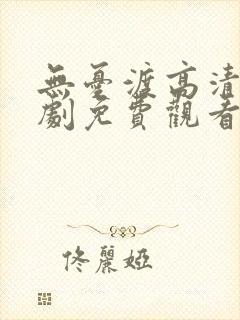 無憂渡高清
劇免費觀看
佟麗婭